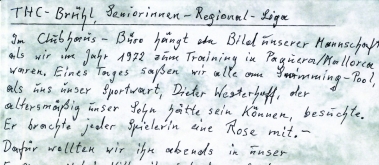 THC-Brühl, Seniorinnen-Regional-Liga
Im Clubhaus-Büro hängt ein Bild unserer Mannschaft
als wir im Jahr 1972 zum Training in Paguera/Mallorca
waren. Eines Tages saßen wir alle am Swimming-Pool,
als uns unser Sportwart, Dieter Westerhoff, der
altersmäßig unser Sohn hätte sein können, besuchte.
Er brachte jeder Spielerin eine Rose mit.-
Dafür wollten wir ihn abends in unser